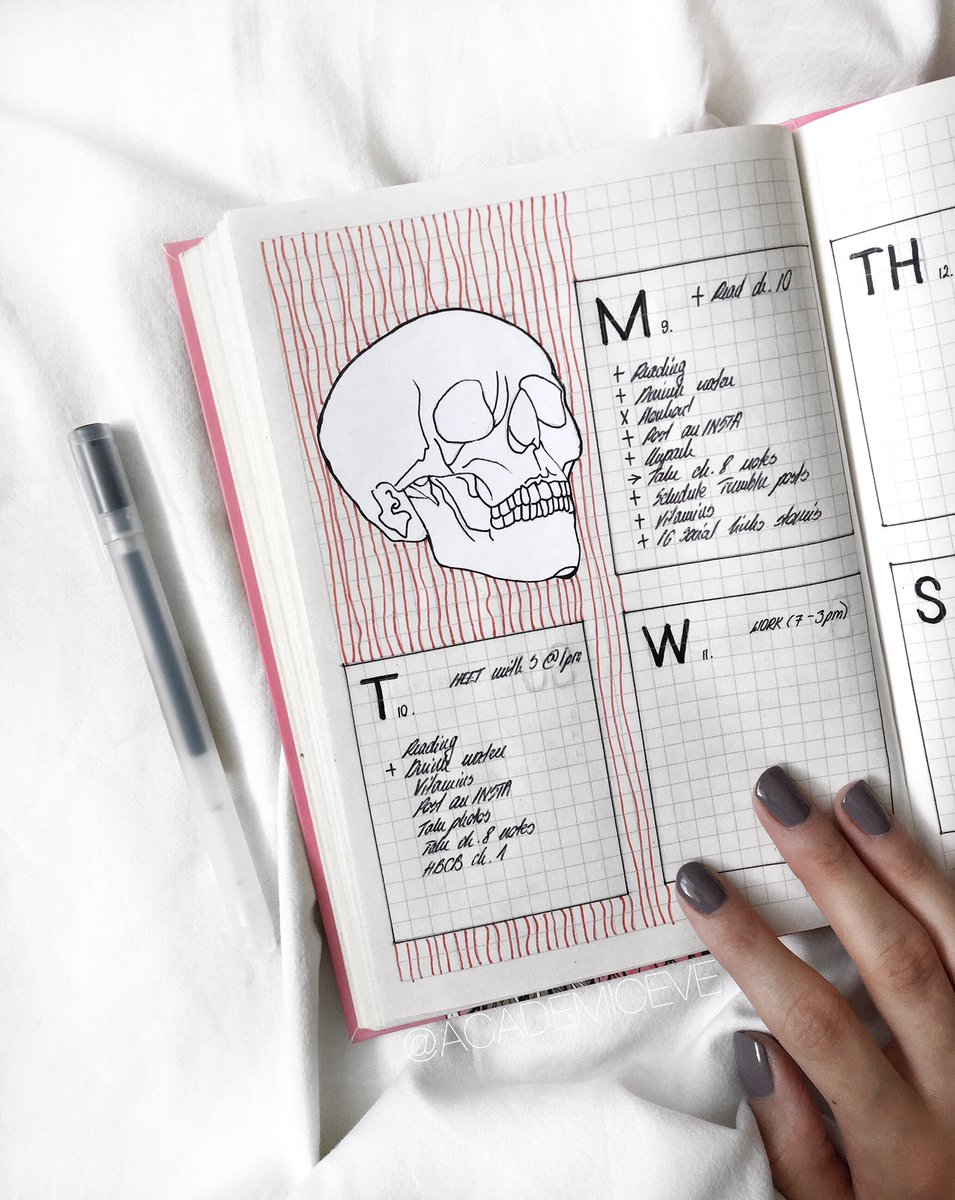 M 9.
+ Read ch. 10
+ Reading
+ Drink water
X
+ Post on INSTA
+ Unpack
→ Take ch. 8 notes
+ Schedule Tumblr posts
+ Vitamins
+ IG Social links stories
T 10.
MEET with S @ 1pm
Reading
+ Drink water
Vitamins
Post on INSTA
Take photos
Take ch. 8 notes
HBCB ch. 1
W 11.
WORK (7-3pm)
TH 12.
S
@ACADEMICEVE